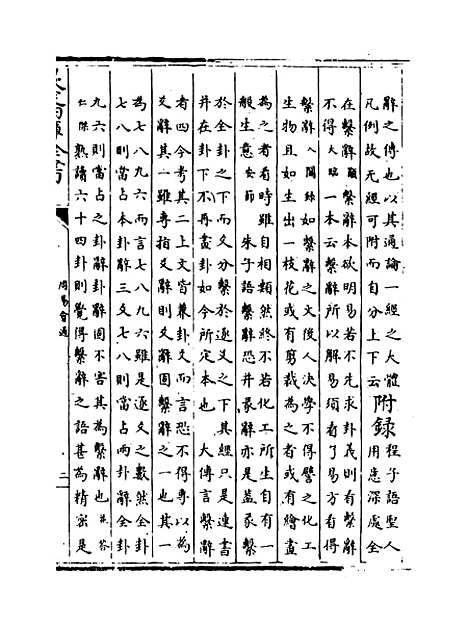 辭之傳也以其通論一經之大體
凡例故无經可附而自分上下云附錄程子語聖人用意深處全
在繫辭頤繫辭本欲明易若不先求卦義則看繫辭
不得大臨一本云繫辭所以解易須看了易方看得
繫辭入關錄如繫辭之文後人決學不得譬之化工
生物且如生出一枝花或有剪裁為之者或有繪畫
為之者看時雖自相類然終不若化工所生自有一
般生意安節朱子語繫辭恐并彖辭亦是蓋彖繫
於全卦之下而爻分繫於逐爻之下其經只是連書
并在卦下不再畫卦如今所定本也大傳言繫辭
者四今考其二上文皆兼卦爻而言恐不得專以為
爻辭其一雖專指爻辭則爻辭固繫辭之一也其一
為七八九六而言七八九六雖是逐爻之數然全卦
七八則當占本卦辭三爻七八則當占兩卦辭全卦
九六則當占之卦辭卦辭固不害其為繫辭也並答
仁傑熟讀六十四卦則覺得繫辭之語甚為精密是
周易會通
二